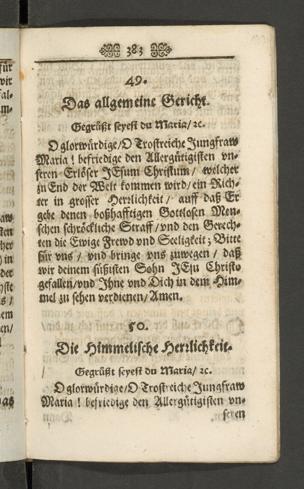 383
49.
Das allgemeine Gericht.
Gegrüßt seyest du Maria/ ꝛc.
O glorwürdige/ O Trostreiche Jungfraw
Maria ! befriedige den Allergütigisten vn-
seren Erlöser JEsum Christum/ welcher
zu End der Welt kommen wird/ ein Rich-
ter in grosser Herrlichkeit/ auff daß Er
gebe denen boßhafftigen Gottlosen Men-
schen schröckliche Straff/ vnd den Gerech-
ten die Ewige Frewd vnd Seeligkeit; Bitte
für vns/ vnd bringe vns zuwegen/ daß
wir deinem süßisten Sohn JEsu Christo
gefallen/ vnd Ihne vnd Dich in dem Him-
mel zu sehen verdienen/ Amen.
50.
Die Himmelische Herrlichkeit.
Gegrüßt seyest du Maria/ ꝛc.
O glorwürdige/ O Trostreiche Jungfraw
Maria ! befriedige den Allergütigisten vn-
seren